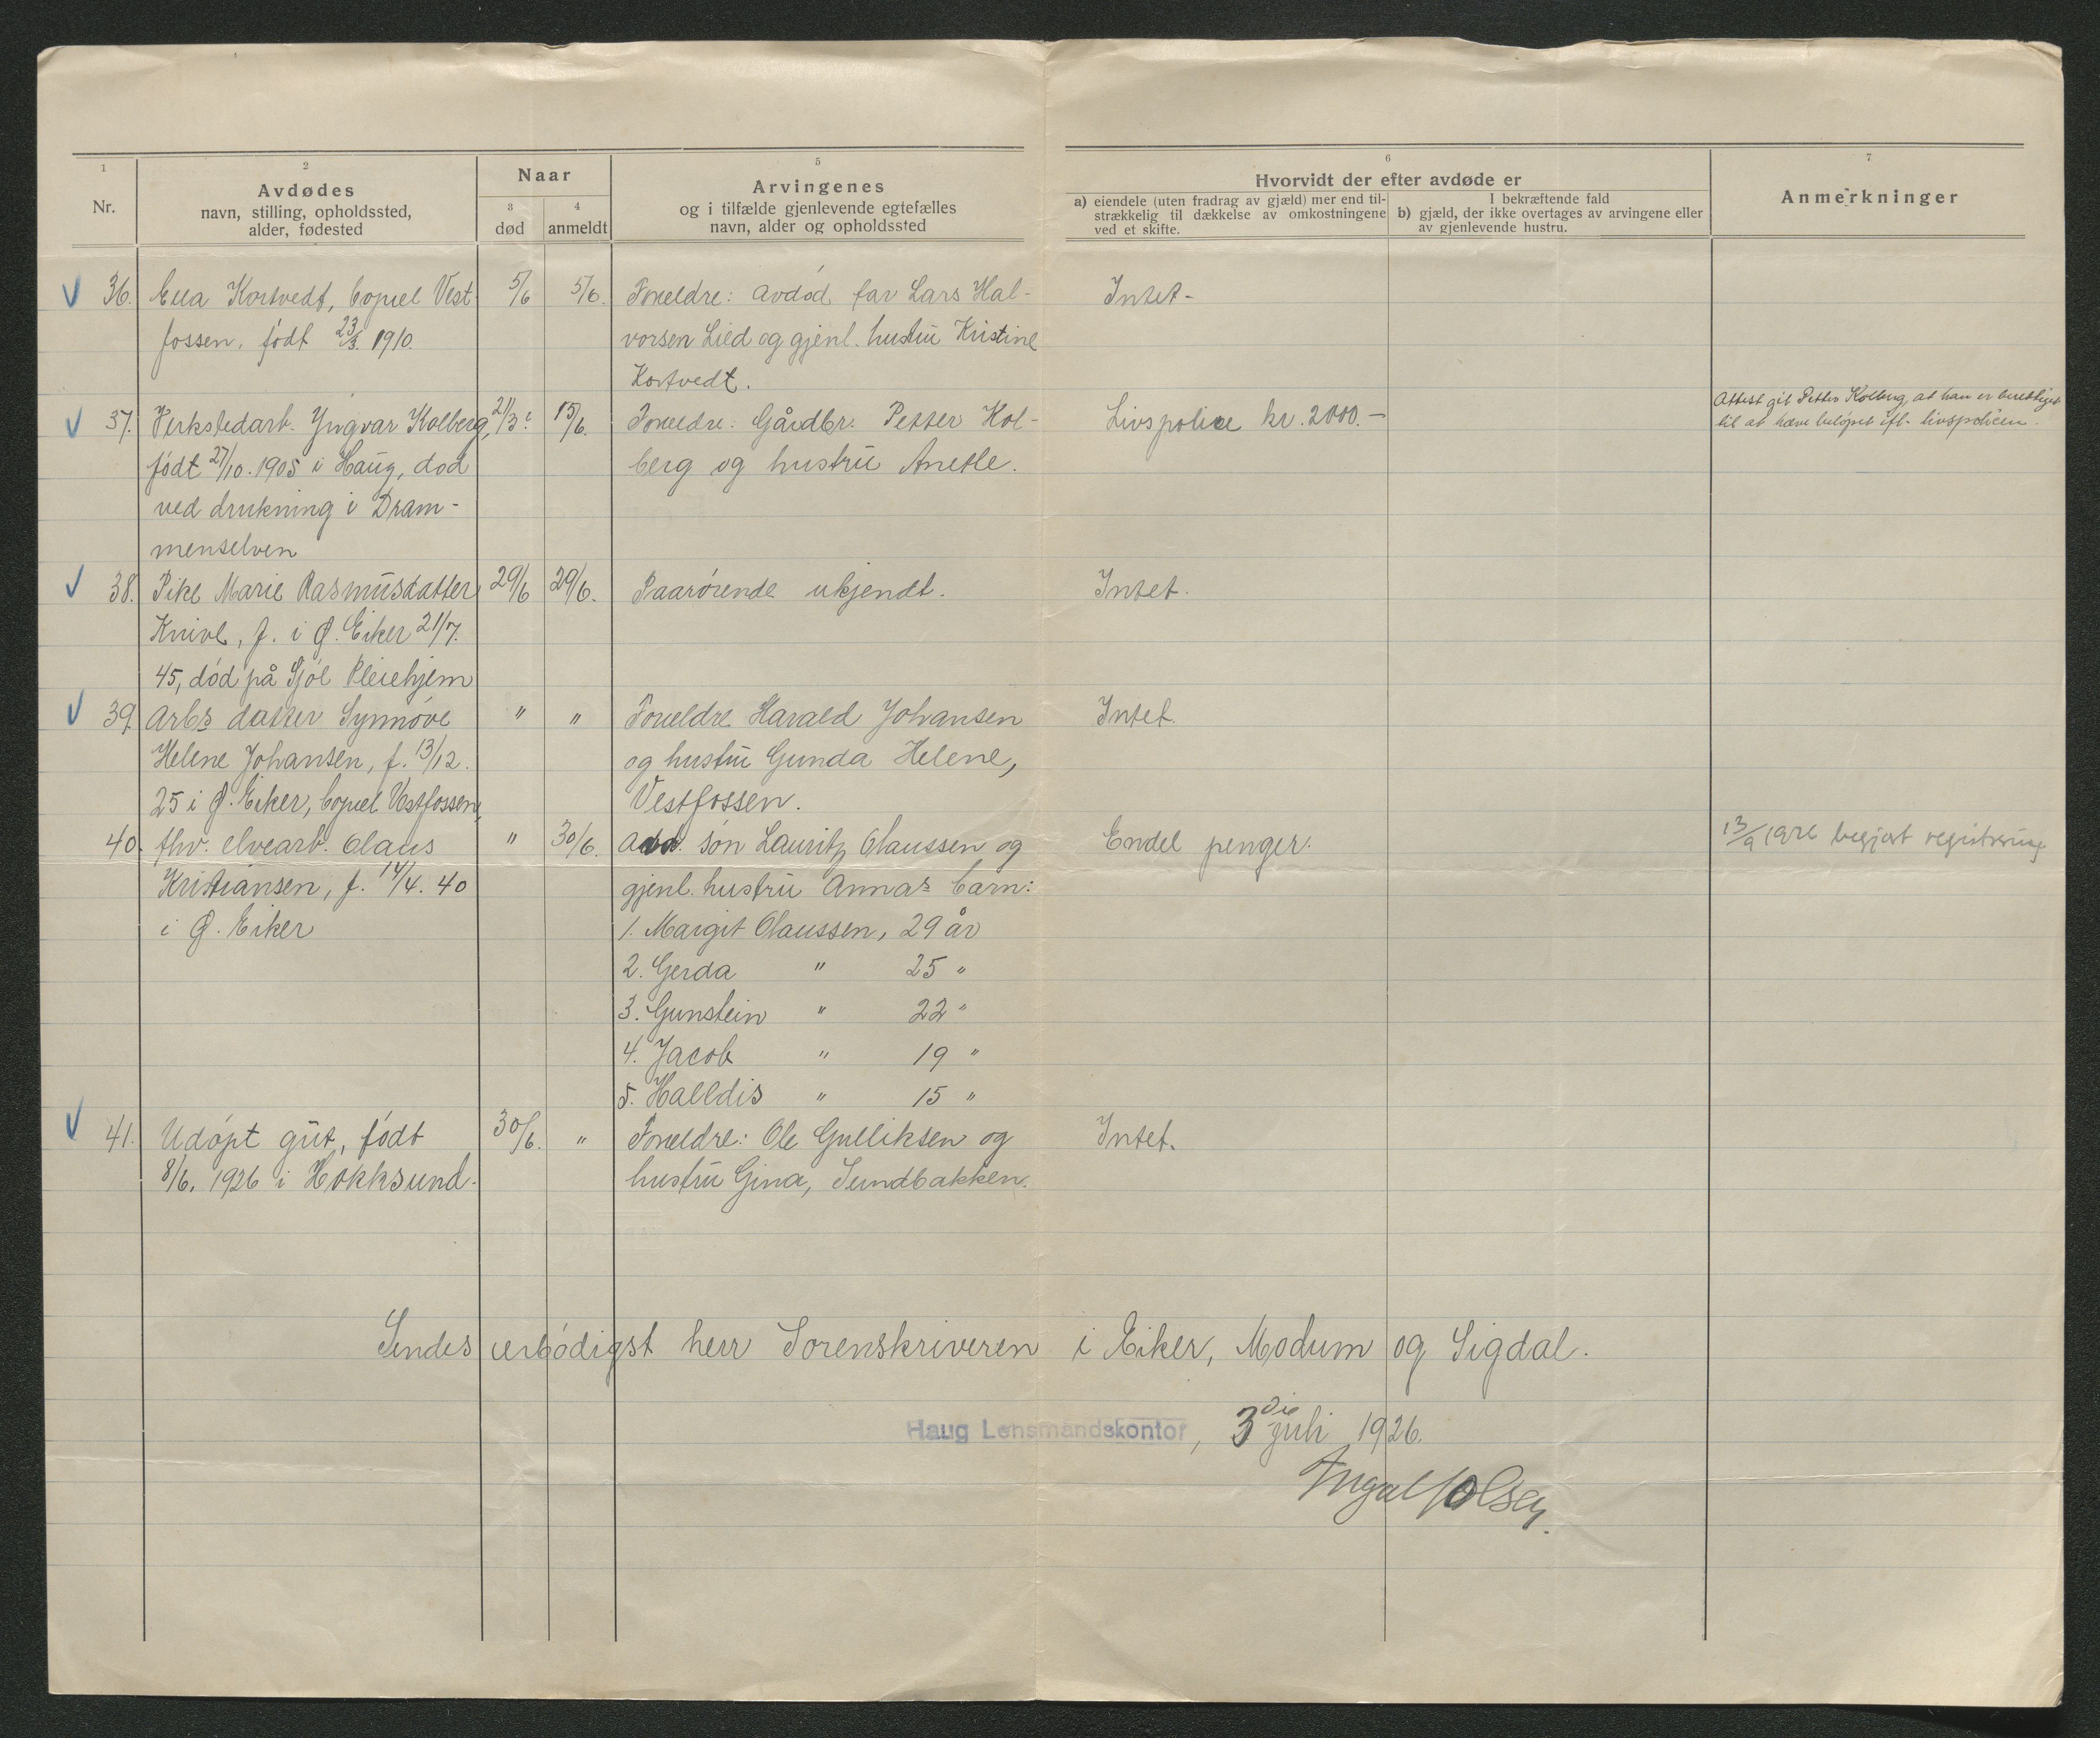 1
Nr.
2
Avdødes
navn, stilling, opholdssted,
alder, fødested
Naar
3
død
4
anmeldt
5
Arvingenes
og i tilfælde gjenlevende egtefælles
navn, alder og opholdssted
6
Hvorvidt der efter avdøde er
a) eiendele (uten fradrag av gjæld) mer end til-
strækkelig til dækkelse av omkostningene
ved et skifte.
I bekræftende fald
b) gjæld, der ikke overtages av arvingene eller
av gjenlevende hustru.
7
Anmerkninger
36. Kortvedt, bopæl Vest- 5/6 5/6. Foreldre: Avdød far Lars Hal- Intet-
fossen, født 23/3. 1910. vorsen Lied og gjenl. hustru Kristine
Kortvedt.
37. Verkstedarb. Yngvar Kolberg, 21/3 15/6. Foreldre: Gårdbr. Petter Kol- Livspolice kr. 2000.- Attest git Petter Kolberg, at han er berettiget
til at hæve beløpet ifl. livspolicen.
født 27/10. 1905 i Haug, død berg og hustru Anette.
ved drukning i Dram-
menselven
38. Pike Marie Rasmusdatter 29/6 29/6. Paarørende ukjendt. Intet.
Knive, f. i Ø. Eiker 21/7.
45, død på Sjøl Pleiehjem
39. Arbs datter Synnøve " " Foreldre Harald Johansen Intet.
Helene Johansen, f. 13/12. og hustru Gunda Helene,
25 i Ø. Eiker, bopæl Vestfossen, Vestfossen.
40. fhv. elvearb. Olaus " 30/6. Avd. søn Lauritz Olaussen og Endel penger. 13/9 1926 begjært registrering
Kristiansen, f. 14/4. 40 gjenl. hustru Annas barn:
i Ø. Eiker 1. Margit Olaussen, 29 år
2. Gerda " 25 "
3. Gunstein " 22 "
4. Jacob " 19 "
5. Halldis " 15 "
41. Udøpt gut, født 30/6. " Foreldre: Ole Gulliksen og Intet.
8/6. 1926 i Hokksund. hustru Gina, Sundbakken.
Sendes ærbødigst herr Sorenskriveren i Eiker, Modum og Sigdal.
Haug Lensmandskontor, 3die juli 1926.
Ingolf Olsen.